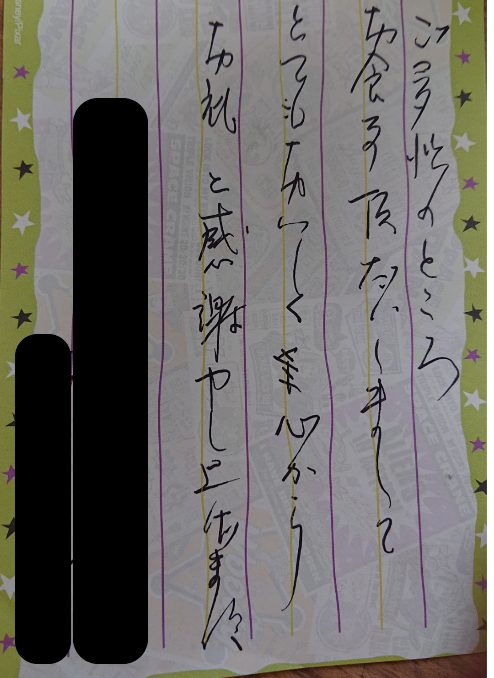 ご多忙のところ
お食 頂 しまして
とてもおいしく 心から
お礼と感謝申し上げます
Disney/Pixar